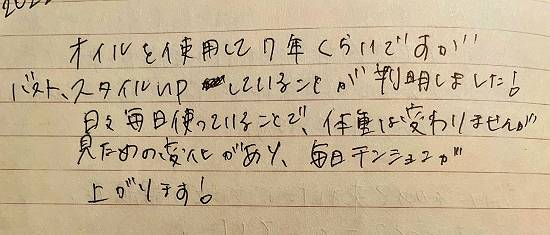 202
オイルを使用して7年くらいですが
バスト、スタイルup していることが判明しました!
日々毎日使っていることで、体重は変わりませんが
見ための変化があり、毎日テンションが
上がります!